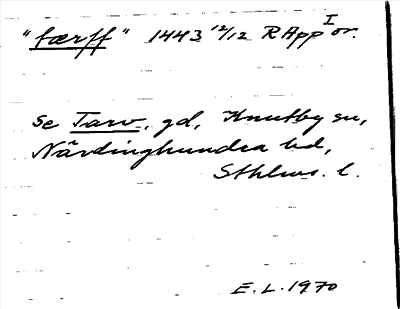 "færff" 1443 12/12 RApp I or.
Se Tarv, gd, Knutby sn,
Närdinghundra hd,
Sthlms. l.
E.L. 1970